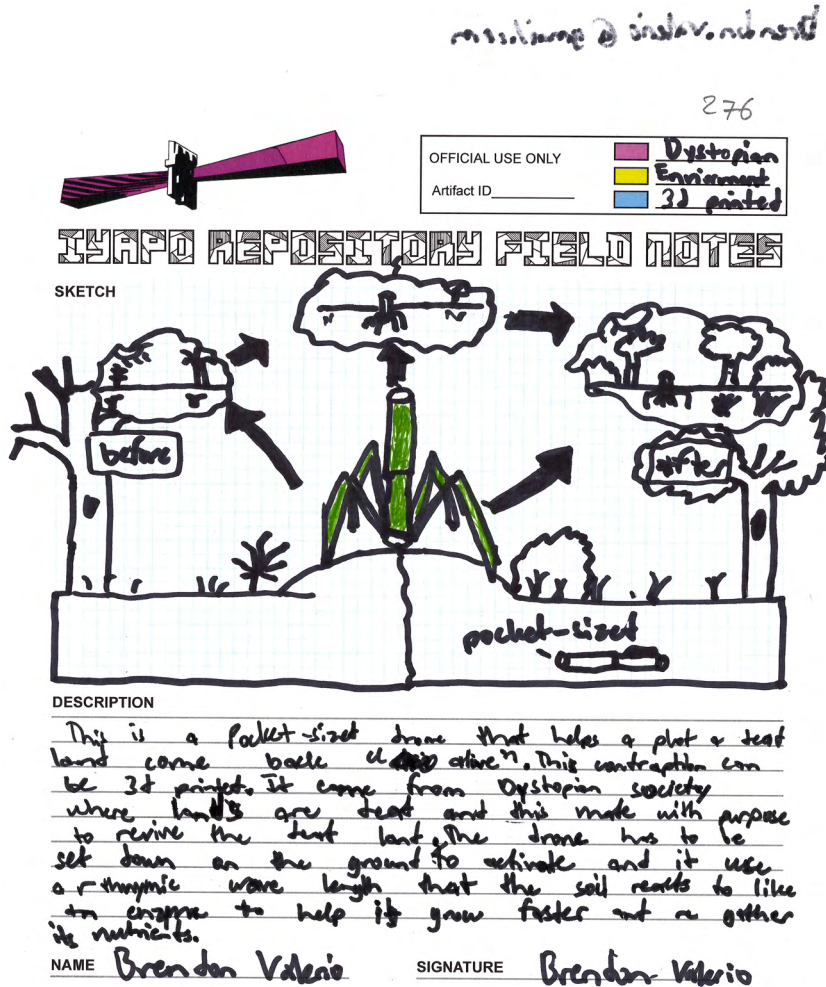 Brendon.valerio@gmail.com
276
OFFICIAL USE ONLY
Artifact ID
Dystopian
Enviornment
3d printed
IYAPO REPOSITORY FIELD NOTES
SKETCH
before
after
pocket-sized
DESCRIPTION
This is a Pocket-sized drone that helps a plot a dead
land come back "alive". This contraption can
be 3d printed. It came from Dystopian society
where lands are dead and this made with purpose
to revive the dead land. The drone has to be
set down on the ground to activate and it use
a rthmymic wave length that the soil reacts to like
an enzyme to help it grow faster and gather
its nutrients.
NAME Brendon Valerio
SIGNATURE Brendon Valerio